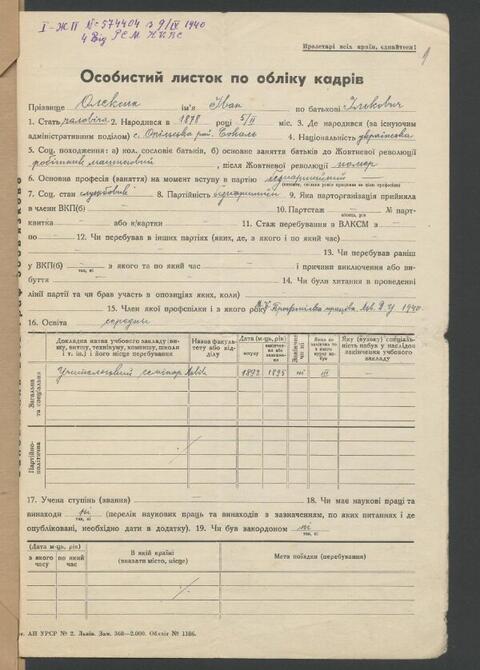 I - ЖП № 574404 з 9/IX 1940
4 Від РСМ НКВС
Пролетарі всіх країн, єднайтеся!
9
Особистий листок по обліку кадрів
Прізвище Олексин ім'я Іван по батькові Ількович
1. Стать чоловіча 2. Народився в 1878 році 5/II міс. 3. Де народився (за існуючим
адміністративним поділом) с. Опільсько рай. Сокаль 4. Національність українська
5. Соц. походження: а) кол. сословіє батьків, б) основне заняття батьків до Жовтневої революції
робітник , після Жовтневої революції помер
6. Основна професія (заняття) на момент вступу в партію безпартійний
7. Соц. стан службовий 8. Партійність безпартійний 9. Яка парторганізація прийняла
в члени ВКП(б) — 10. Партстаж — № парт-
місяць, рік
квитка — або к/картки — 11. Стаж перебування в ВЛКСМ з —
по — 12. Чи перебував в інших партіях (яких, де, з якого і по який час) —
13. Чи перебував раніш
у ВКП(б) — з якого та по який час — і причини виключення або ви-
так, ні
буття — 14. Чи були хитання в проведенні
лінії партії та чи брав участь в опозиціях яких, коли) —
15. Член якої профспілки і з якого року 1940
16. Освіта середня
Докладна назва учбового закладу (ви-
шу, витшу, технікуму, комвишу, школи
і т. ін.) і його місце перебування
Назва факуль-
тету або від-
ділу
Дата (м-ць, рік)
вступу
Яку (вузьку) спеціаль-
ність набув у наслідок
закінчення учбового
закладу
Загальна та спеціальна
Учительський семінар Львів — 1892 1895 ні III —
Партійно-політична
17. Учена ступінь (звання) — 18. Чи має наукові праці та
винаходи ні (перелік наукових праць та винаходів з зазначенням, по яких питаннях і де
так, ні
опубліковані, необхідно дати в додатку). 19. Чи був закордоном ні
так, ні
(Дата (м-ць, рік)
з якого часу
по який час
В якій країні
(вказати місто, місце)
Мета поїздки (перебування)
АН УРСР № 2. Львів. Зам. 368—2.000. Обліт № 1186.